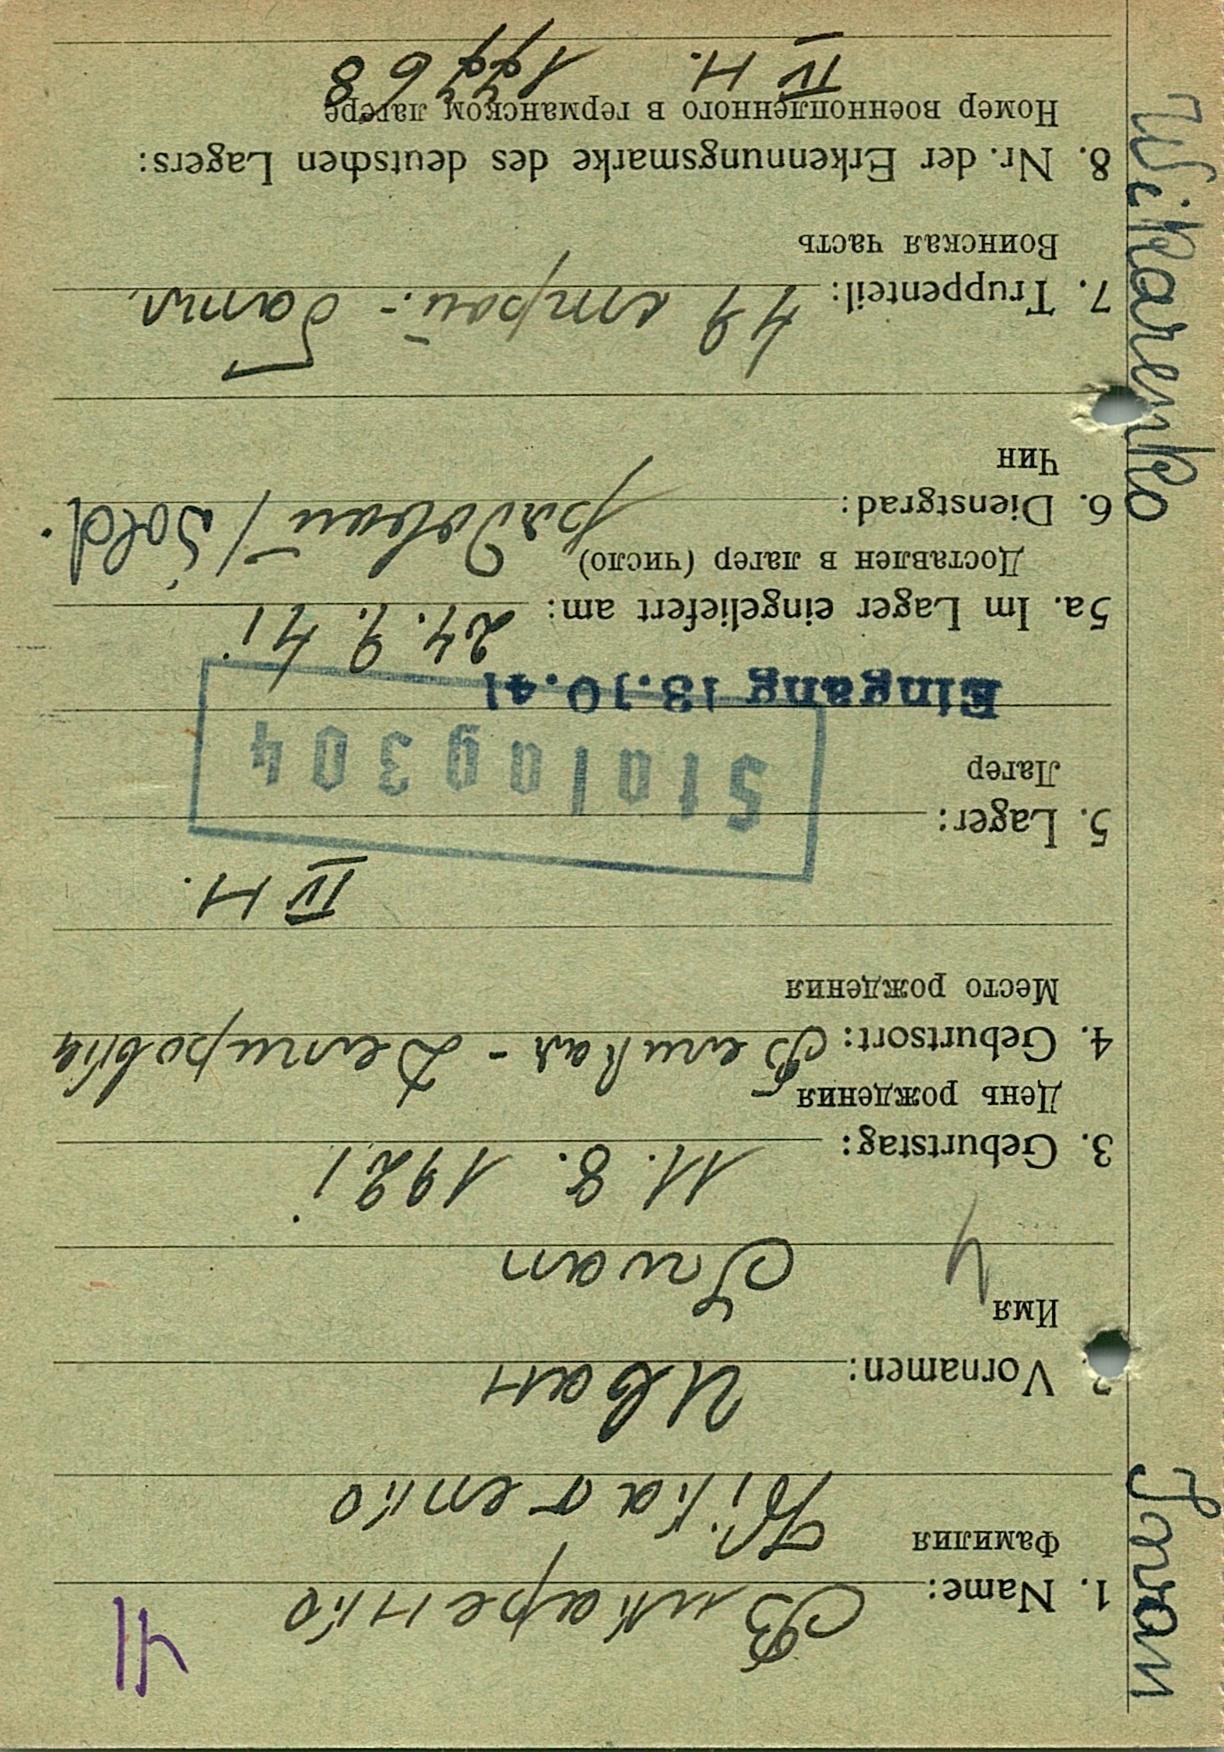 41
1. Name: Викаренко
Фамилия Wikarenko
2. Vornamen: Иван
Имя Iwan
3. Geburtstag: 11. 8. 1921
День рождения
4. Geburtsort: Великая-
Место рождения
IV H.
5. Lager:
Лагер
Stalag 304
Eingang 13.10.41
5a. Im Lager eingeliefert am: 24. 9. 41
Доставлен в лагер (число)
6. Dienstgrad: рядовай / Sold.
Чин
7. Truppenteil: 49 строй-батал.
Воинская часть
8. Nr. der Erkennungsmarke des deutschen Lagers:
Номер военнопленного в германском лагере
IV H.
Iwan Wikarenko